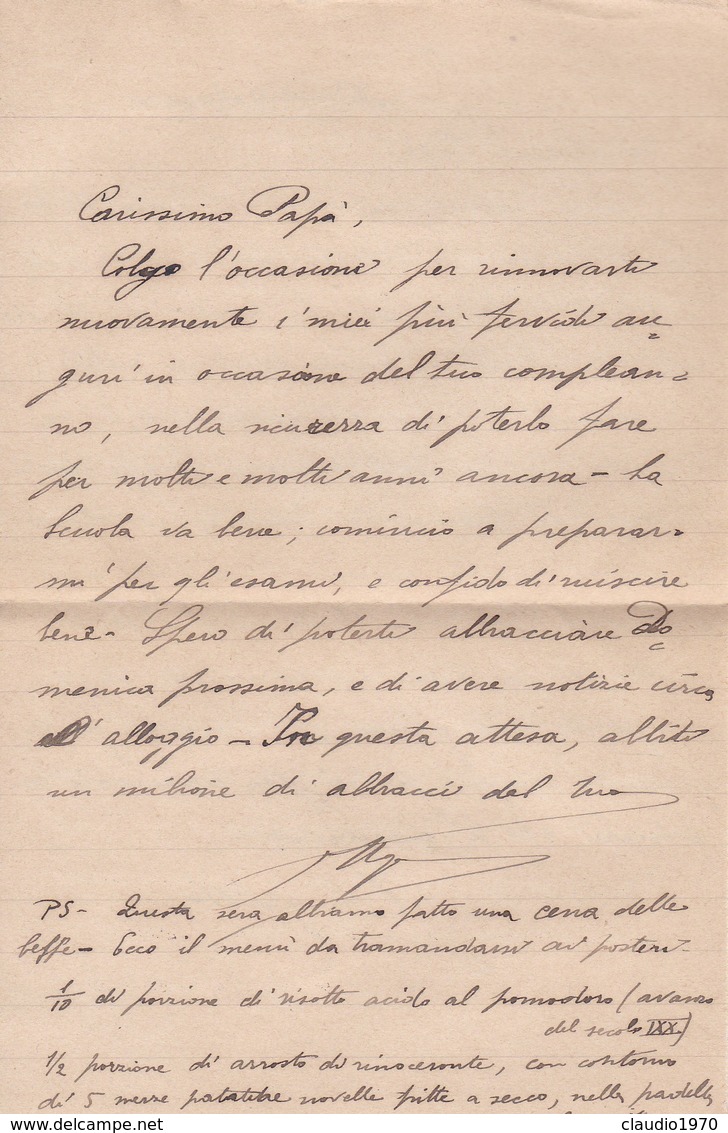 Carissimo Papà,
Colgo l'occasione per rinnovarti
nuovamente i miei più fervidi au=
guri in occasione del tuo complean=
no, nella sicurezza di poterlo fare
per molti e molti anni ancora - La
Scuola va bene; comincio a preparar=
mi per gli esami, e confido di riuscire
bene - Spero di poterti abbracciare Do=
menica prossima, e di avere notizie circa
l'alloggio - In questa attesa, abbiti
un milione di abbracci del tuo
PS - Questa sera abbiamo fatto una cena delle
beffe - Ecco il menù da tramandarsi ai posteri -
1/10 di porzione di risotto acido al pomodoro (avanzo
del secolo IXX.)
1/2 porzione di arrosto di rinoceronte, con contorno
di 5 mezze patatine novelle fritte a secco, nella padella
delcampe.net
claudio1970